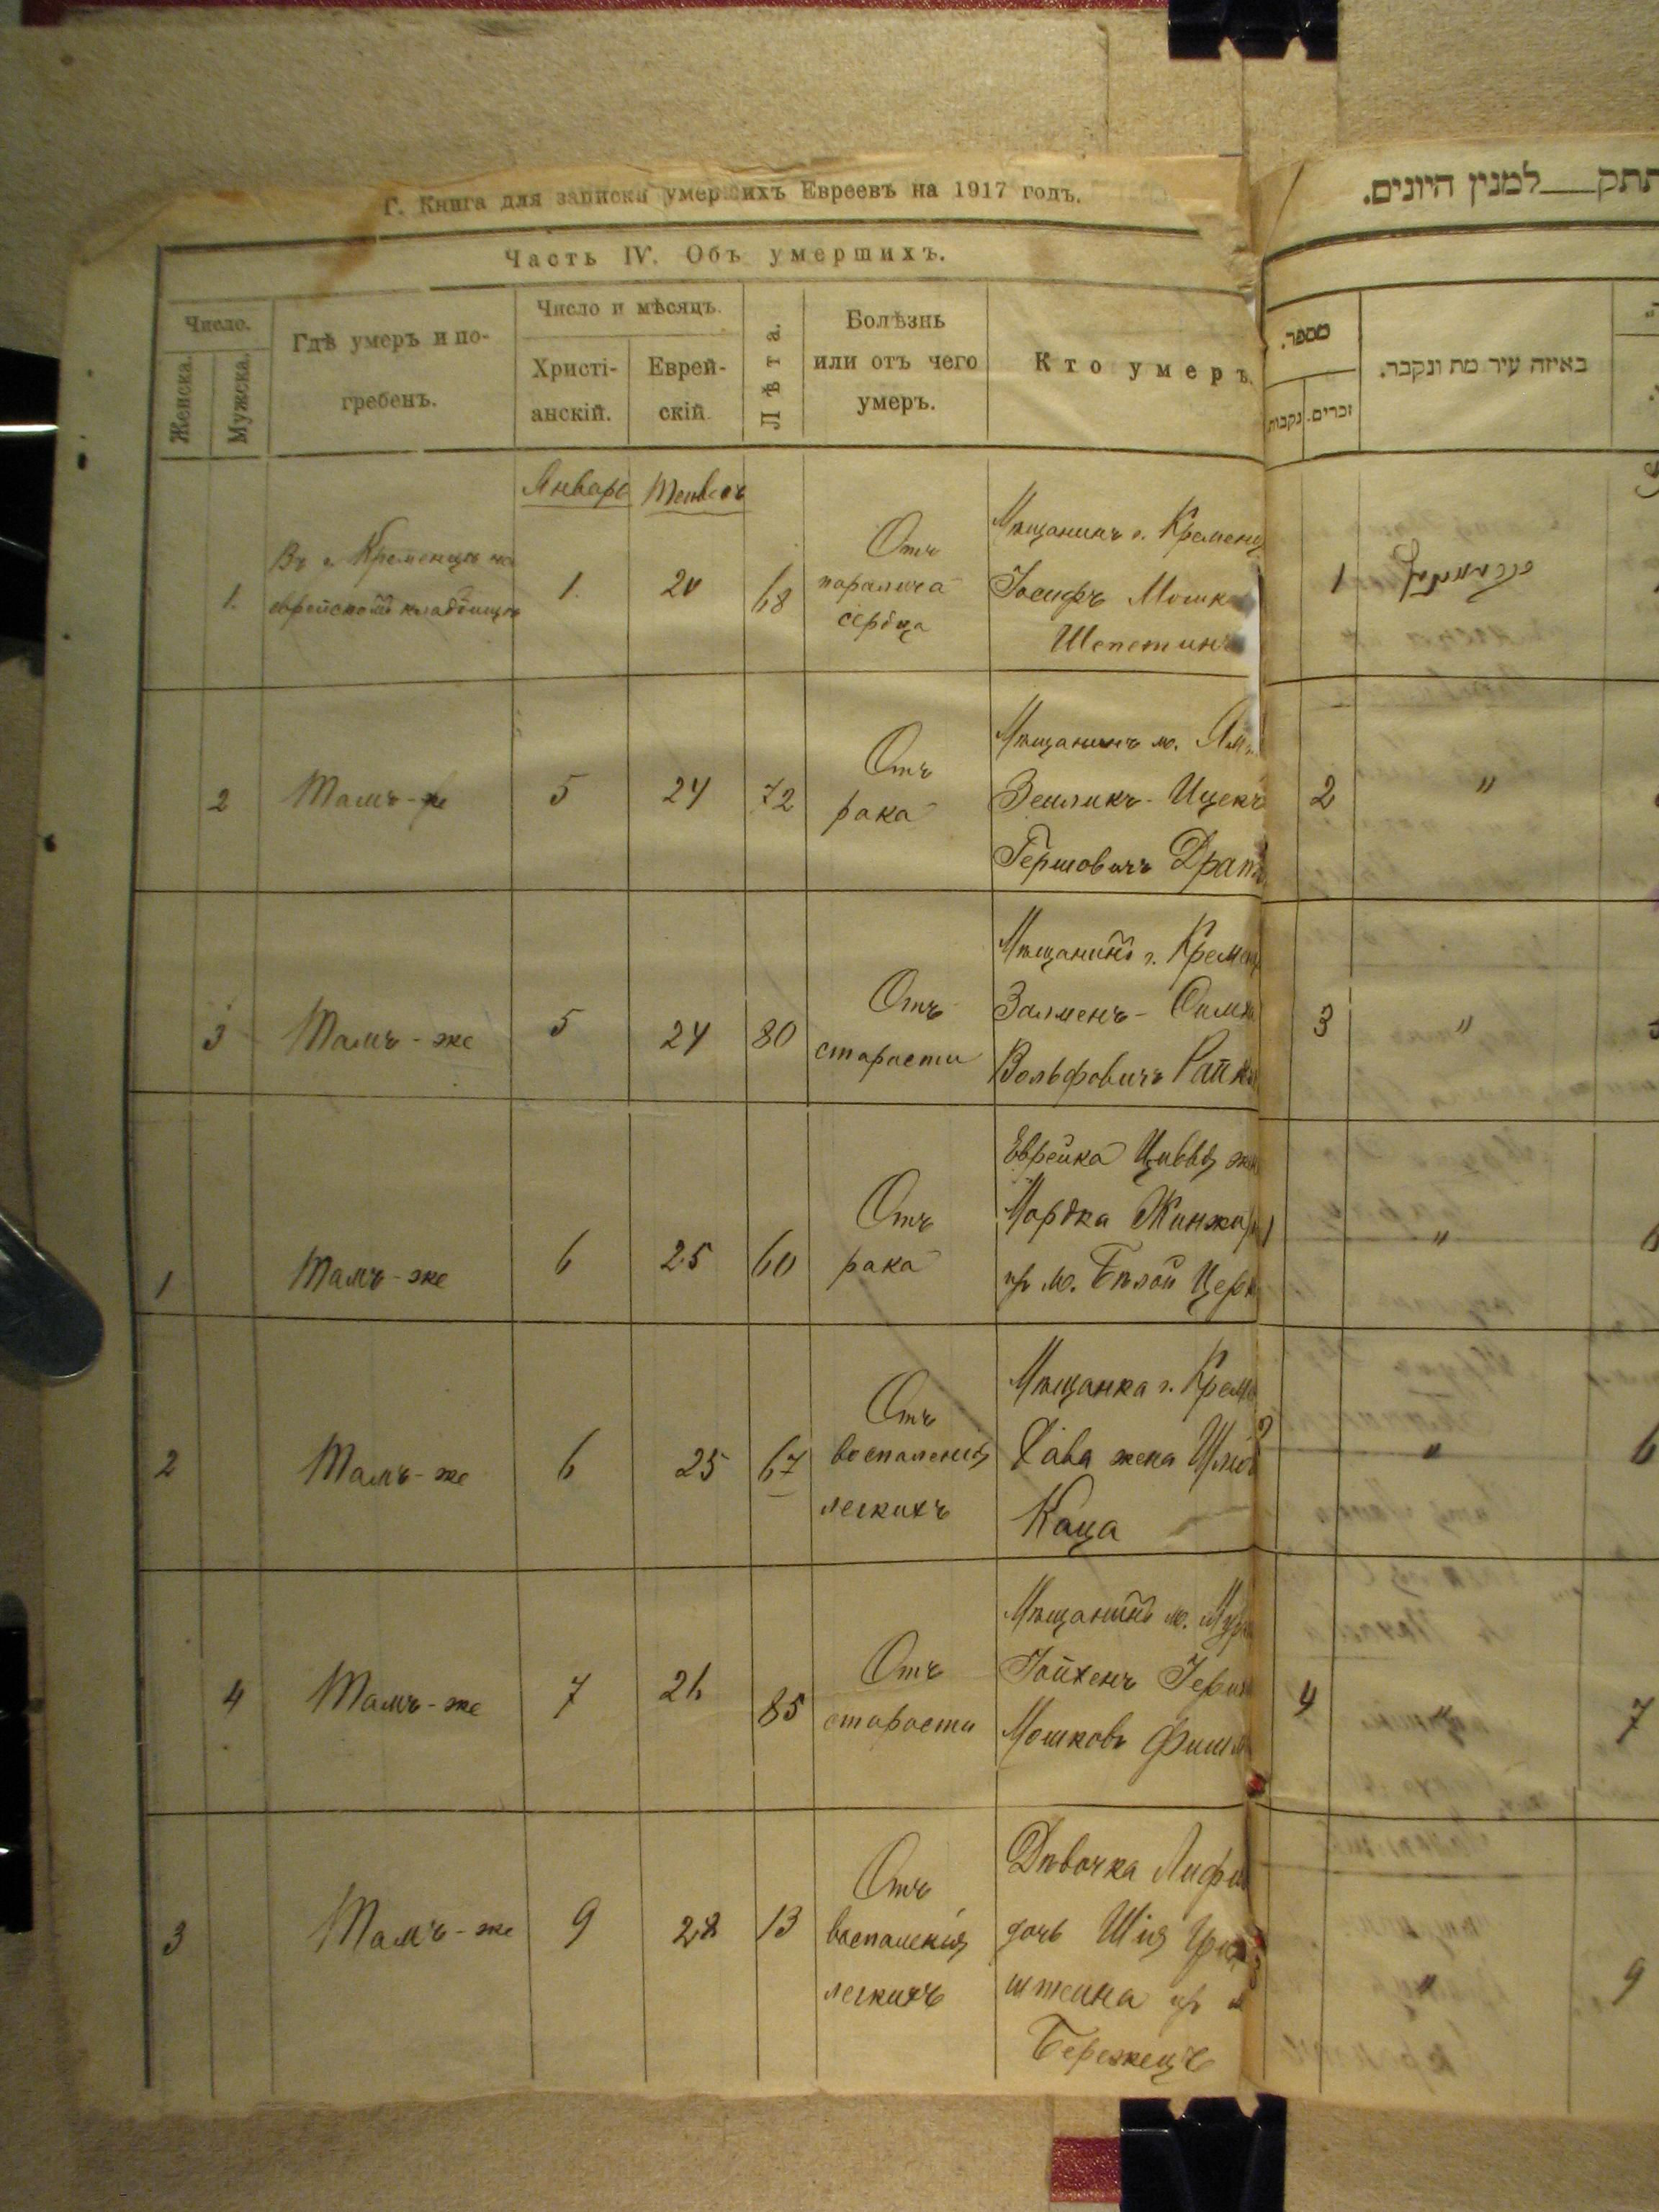 Г. Книга для записки умершихъ Евреевъ на 1917 годъ.
Часть IV. Объ умершихъ.
Число.
Женска.
Мужска.
Гдѣ умеръ и по-
гребенъ.
Число и мѣсяцъ.
Христі-
анскій.
Еврей-
скій.
Лѣта.
Болѣзнь
или отъ чего
умеръ.
Кто умеръ.
Январь
1.
Въ г. Кременцѣ на
еврейскомъ кладбищѣ
1.
20
68
Отъ
паралича
сердца
Мѣщанинъ г. Кременц
Іосифъ Мошк
Шепетинъ
2
Тамъ-же
5
24
72
Отъ
рака
Мѣщанинъ м.
Зейликъ-Ицекъ
Гершовичъ
3
Тамъ-же
5
24
80
Отъ
старости
Мѣщанинъ г. Кремен
Залменъ-
Вольфовичъ
1
Тамъ-же
6
25
60
Отъ
рака
Еврейка Цивья
Мордка
м. Бѣлой Церк
2
Тамъ-же
6
25
67
Отъ
воспаленія
легкихъ
Мѣщанка г. Креме
Хава жена
Каца
4
Тамъ-же
7
26
85
Отъ
старости
Мѣщанинъ м.
Мошковъ Фишм
3
Тамъ-же
9
28
13
Отъ
воспаленія
легкихъ
Дѣвочка
дочь Шія
штейна
Бережецъ
למנין היונים.
מספר.
נקבות
זכרים.
באיזה עיר מת ונקבר.
1
2
"
3
"
"
"
6
4
"
7
"
9